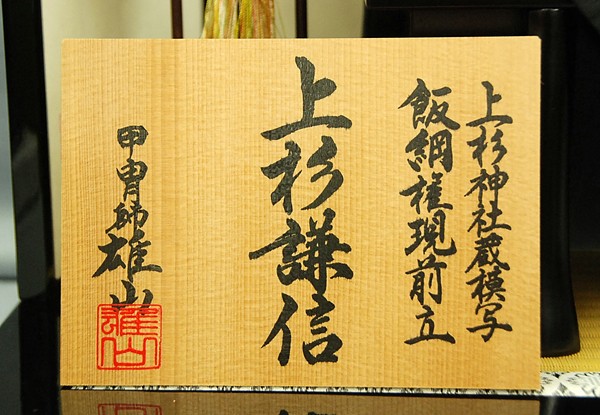 上杉神社蔵模写
飯綱権現前立
上杉謙信
甲冑師雄山
雄山